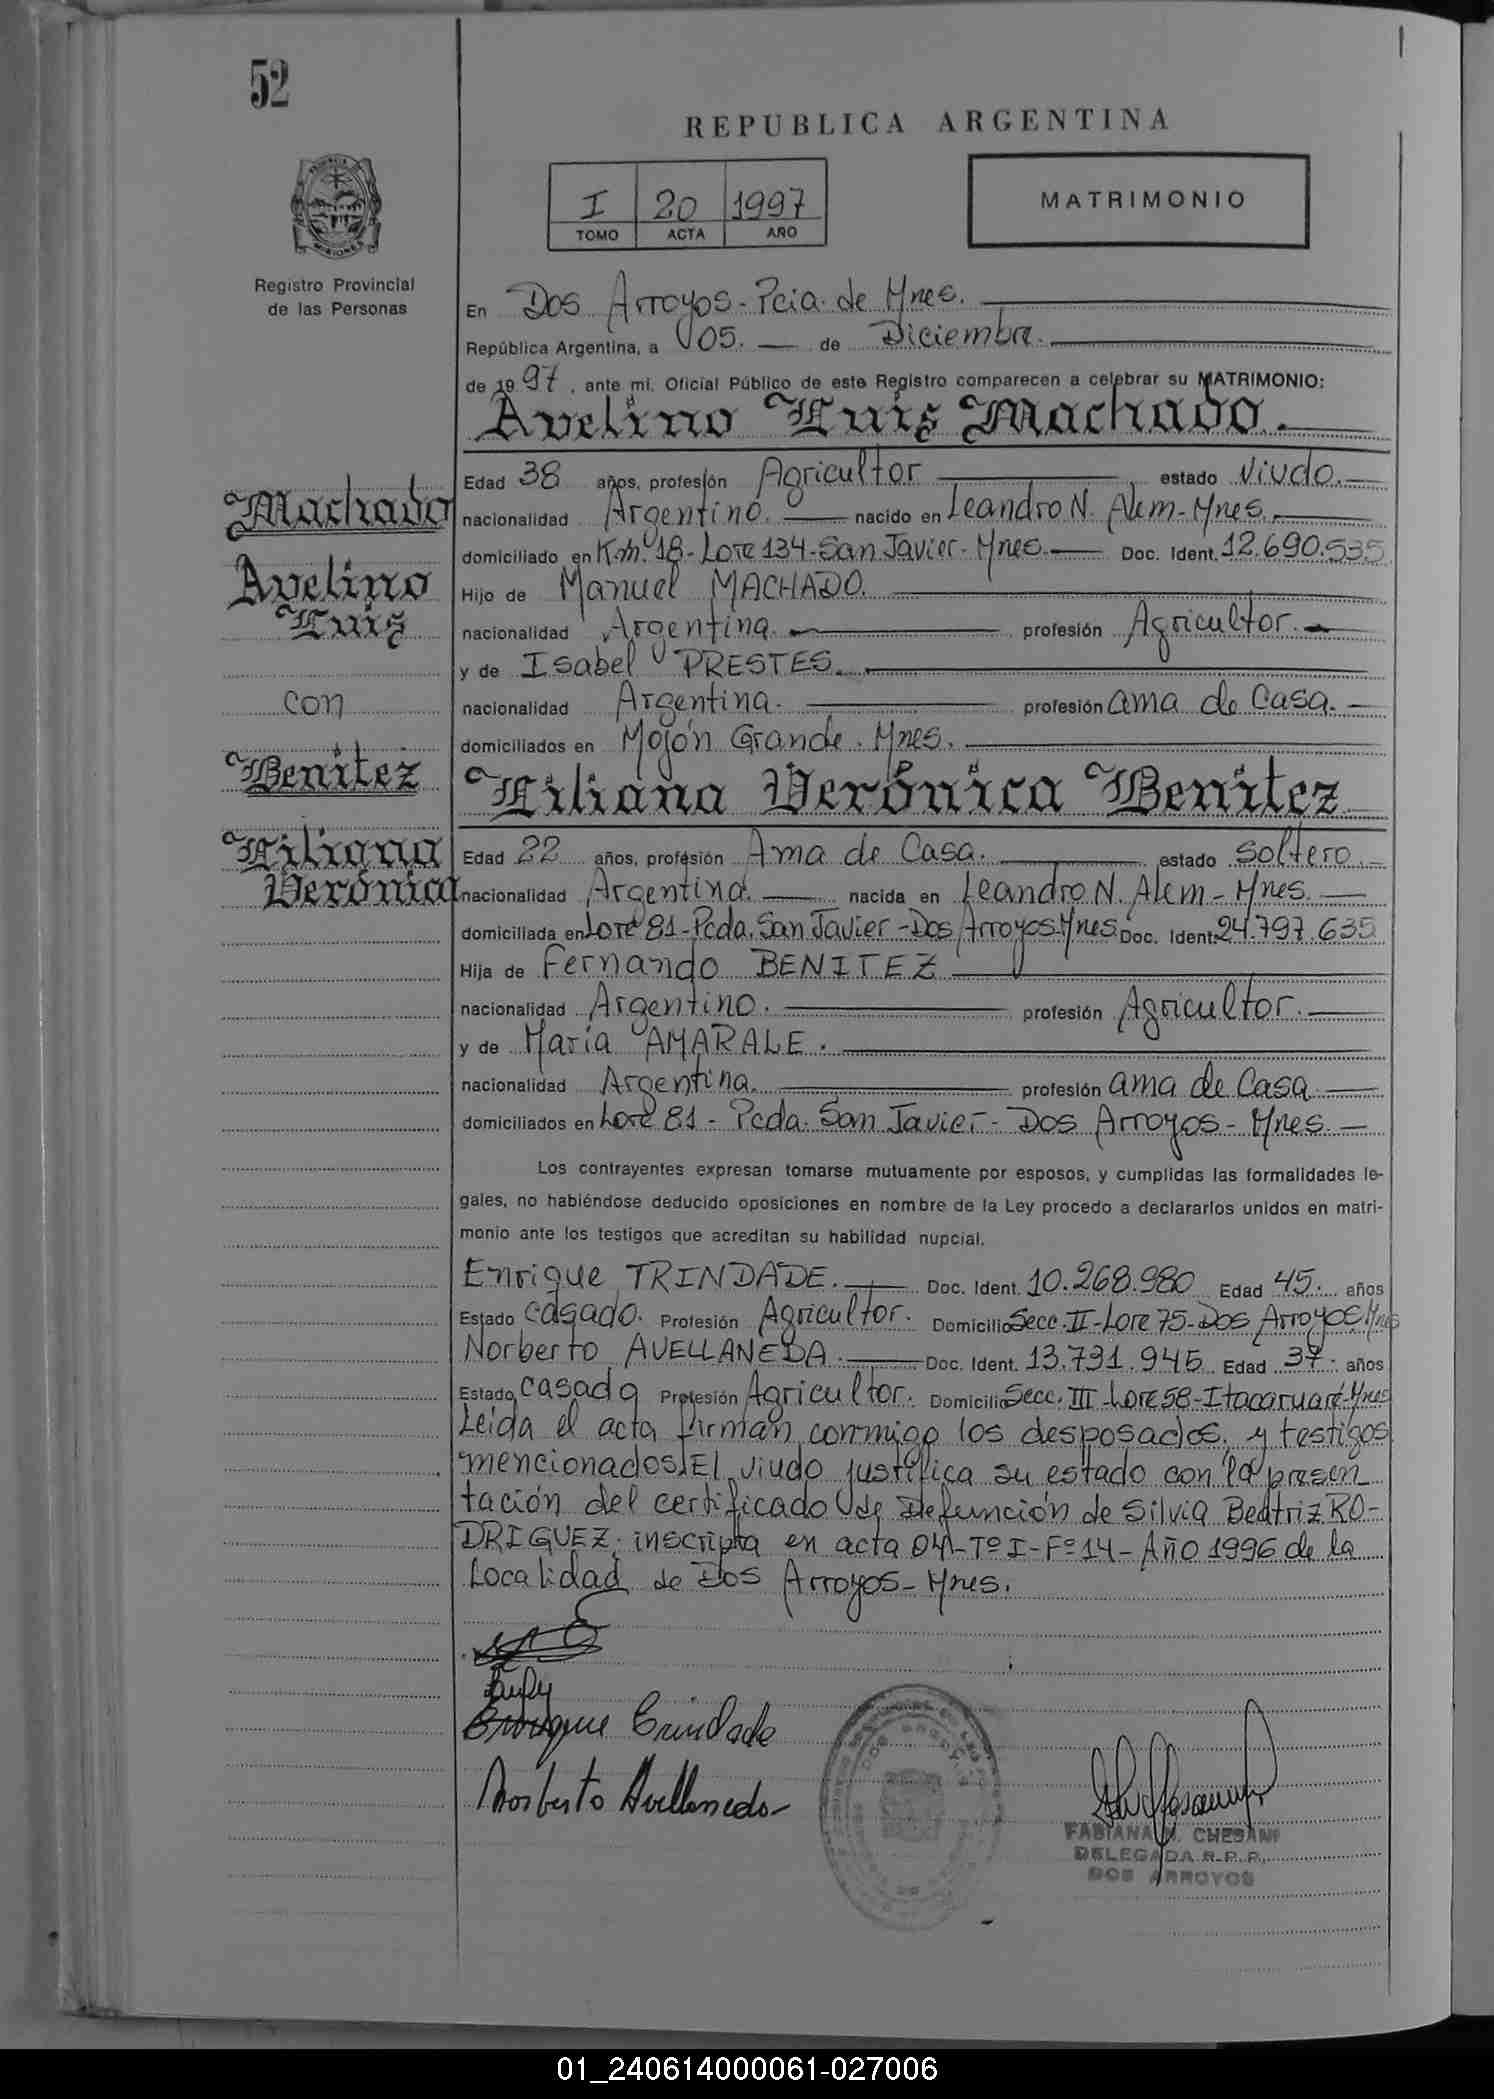 52
REPUBLICA ARGENTINA
I 20 1997
TOMO ACTA AÑO
MATRIMONIO
Registro Provincial
de las Personas
En Dos Arroyos - Pcia. de Mnes.
República Argentina, a 05. de Diciembre.
de 1997, ante mí, Oficial Público de este Registro comparecen a celebrar su MATRIMONIO:
Avelino Luis Machado.
Edad 38 años, profesión Agricultor estado Viudo.
nacionalidad Argentino. nacido en Leandro N. Alem - Mnes.
domiciliado en Km. 18 - Lote 134 - San Javier - Mnes. Doc. Ident. 12.690.535
Hijo de Manuel MACHADO.
nacionalidad Argentina. profesión Agricultor.
y de Isabel PRESTES.
nacionalidad Argentina. profesión ama de Casa.
domiciliados en Mojón Grande. Mnes.
Machado
Avelino
Luis
con
Benitez
Liliana
Verónica
Liliana Verónica Benitez
Edad 22 años, profesión Ama de Casa. estado soltero.
nacionalidad Argentina. nacida en Leandro N. Alem - Mnes.
domiciliada en Lote 81 - Pcda. San Javier - Dos Arroyos Mnes. Doc. Ident. 24.797.635
Hija de Fernando BENITEZ
nacionalidad Argentino. profesión Agricultor.
y de María AMARALE.
nacionalidad Argentina. profesión ama de Casa
domiciliados en Lote 81 - Pcda. San Javier - Dos Arroyos - Mnes.
Los contrayentes expresan tomarse mutuamente por esposos, y cumplidas las formalidades le-
gales, no habiéndose deducido oposiciones en nombre de la Ley procedo a declararlos unidos en matri-
monio ante los testigos que acreditan su habilidad nupcial.
Enrique TRINDADE. Doc. Ident. 10.268.980 Edad 45. años
Estado casado. Profesión Agricultor. Domicilio Secc. II - Lote 75 - Dos Arroyos Mnes
Norberto AVELLANEDA. Doc. Ident. 13.731.945 Edad 37. años
Estado casado Profesión Agricultor. Domicilio Secc. III - Lote 58 - Itacaruaré - Mnes
Leída el acta firman conmigo los desposados, y testigos
mencionados. El viudo justifica su estado con la presen
tación del certificado de Defunción de Silvia Beatriz RO-
DRIGUEZ, inscripta en acta 04 - Tº I - Fº 14 - Año 1996 de la
Localidad de Dos Arroyos - Mnes.
Enrique Trindade
Norberto Avellaneda
FABIANA CHESANI
DELEGADA R.P.P.
DOS ARROYOS
01_240614000061-027006